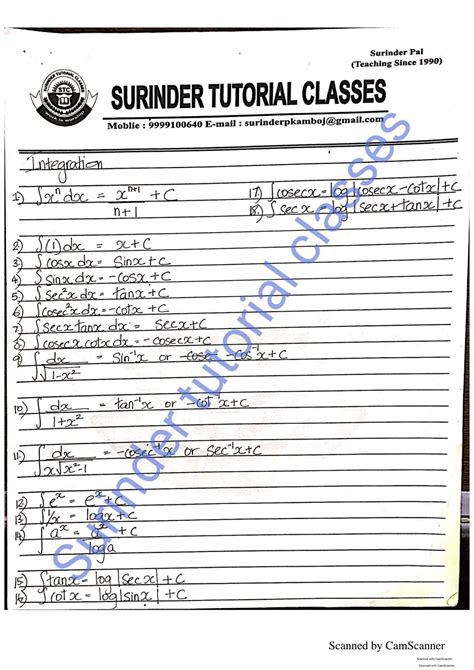 Surinder Pal
(Teaching Since 1990)
SURINDER TUTORIAL CLASSES
STC
SURINDER TUTORIAL CLASSES
Moblie : 9999100640 E-mail : surinderpkamboj@gmail.com
Integration
1) ∫xⁿ dx = xⁿ⁺¹/n+1 + C
17) ∫cosecx = log|cosecx - cotx| + C
18) ∫secx = log|secx + tanx| + C
2) ∫(1) dx = x + C
3) ∫cosx dx = Sinx + C
4) ∫Sinx dx = -Cosx + C
5) ∫Sec²x dx = tanx + C
6) ∫Cosec²x dx = -cotx + C
7) ∫Secx tanx dx = Secx + C
8) ∫cosecx cotx dx = -cosecx + C
9) ∫dx/√1-x² = Sin⁻¹x or -Cos⁻¹x + C
10) ∫dx/1+x² = tan⁻¹x or -cot⁻¹x + C
11) ∫dx/x√x²-1 = -cosec⁻¹x or sec⁻¹x + C
12) ∫eˣ = eˣ + C
13) ∫1/x = logx + C
14) ∫aˣ = aˣ/loga + C
15) ∫tanx = log|secx| + C
∫cotx = log|Sinx| + C
Surinder tutorial classes
Scanned by CamScanner
Scanned with CamScanner
Scanned with CamScanner